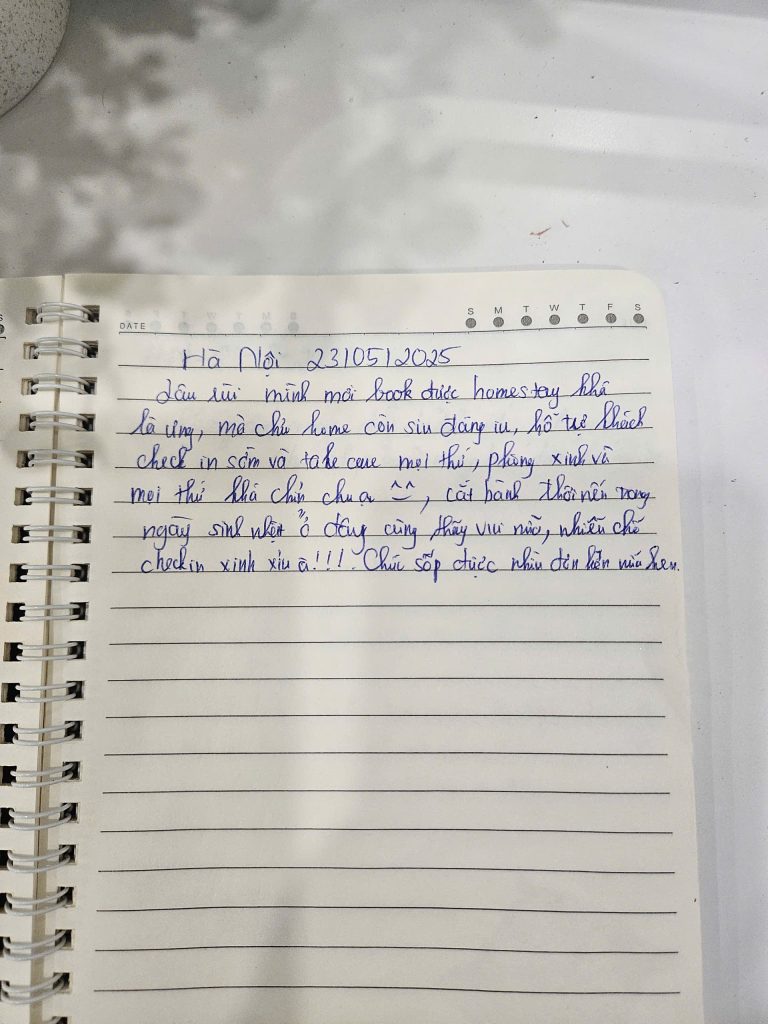 DATE
S M T W T F S
Hà Nội 23/05/2025
Lâu rùi mình mới book được homestay khá
là ưng, mà chủ home còn siu đáng iu, hỗ trợ khách
check in sớm và take care mọi thứ, phòng xinh và
mọi thứ khá chỉn chu ạ ^^, cắt bánh thổi nến trong
ngày sinh nhật ở đây cũng thấy vui nữa, nhiều chỗ
check in xinh xỉu à!!!. Chúc sốp được nhìu đơn hơn nữa hen.